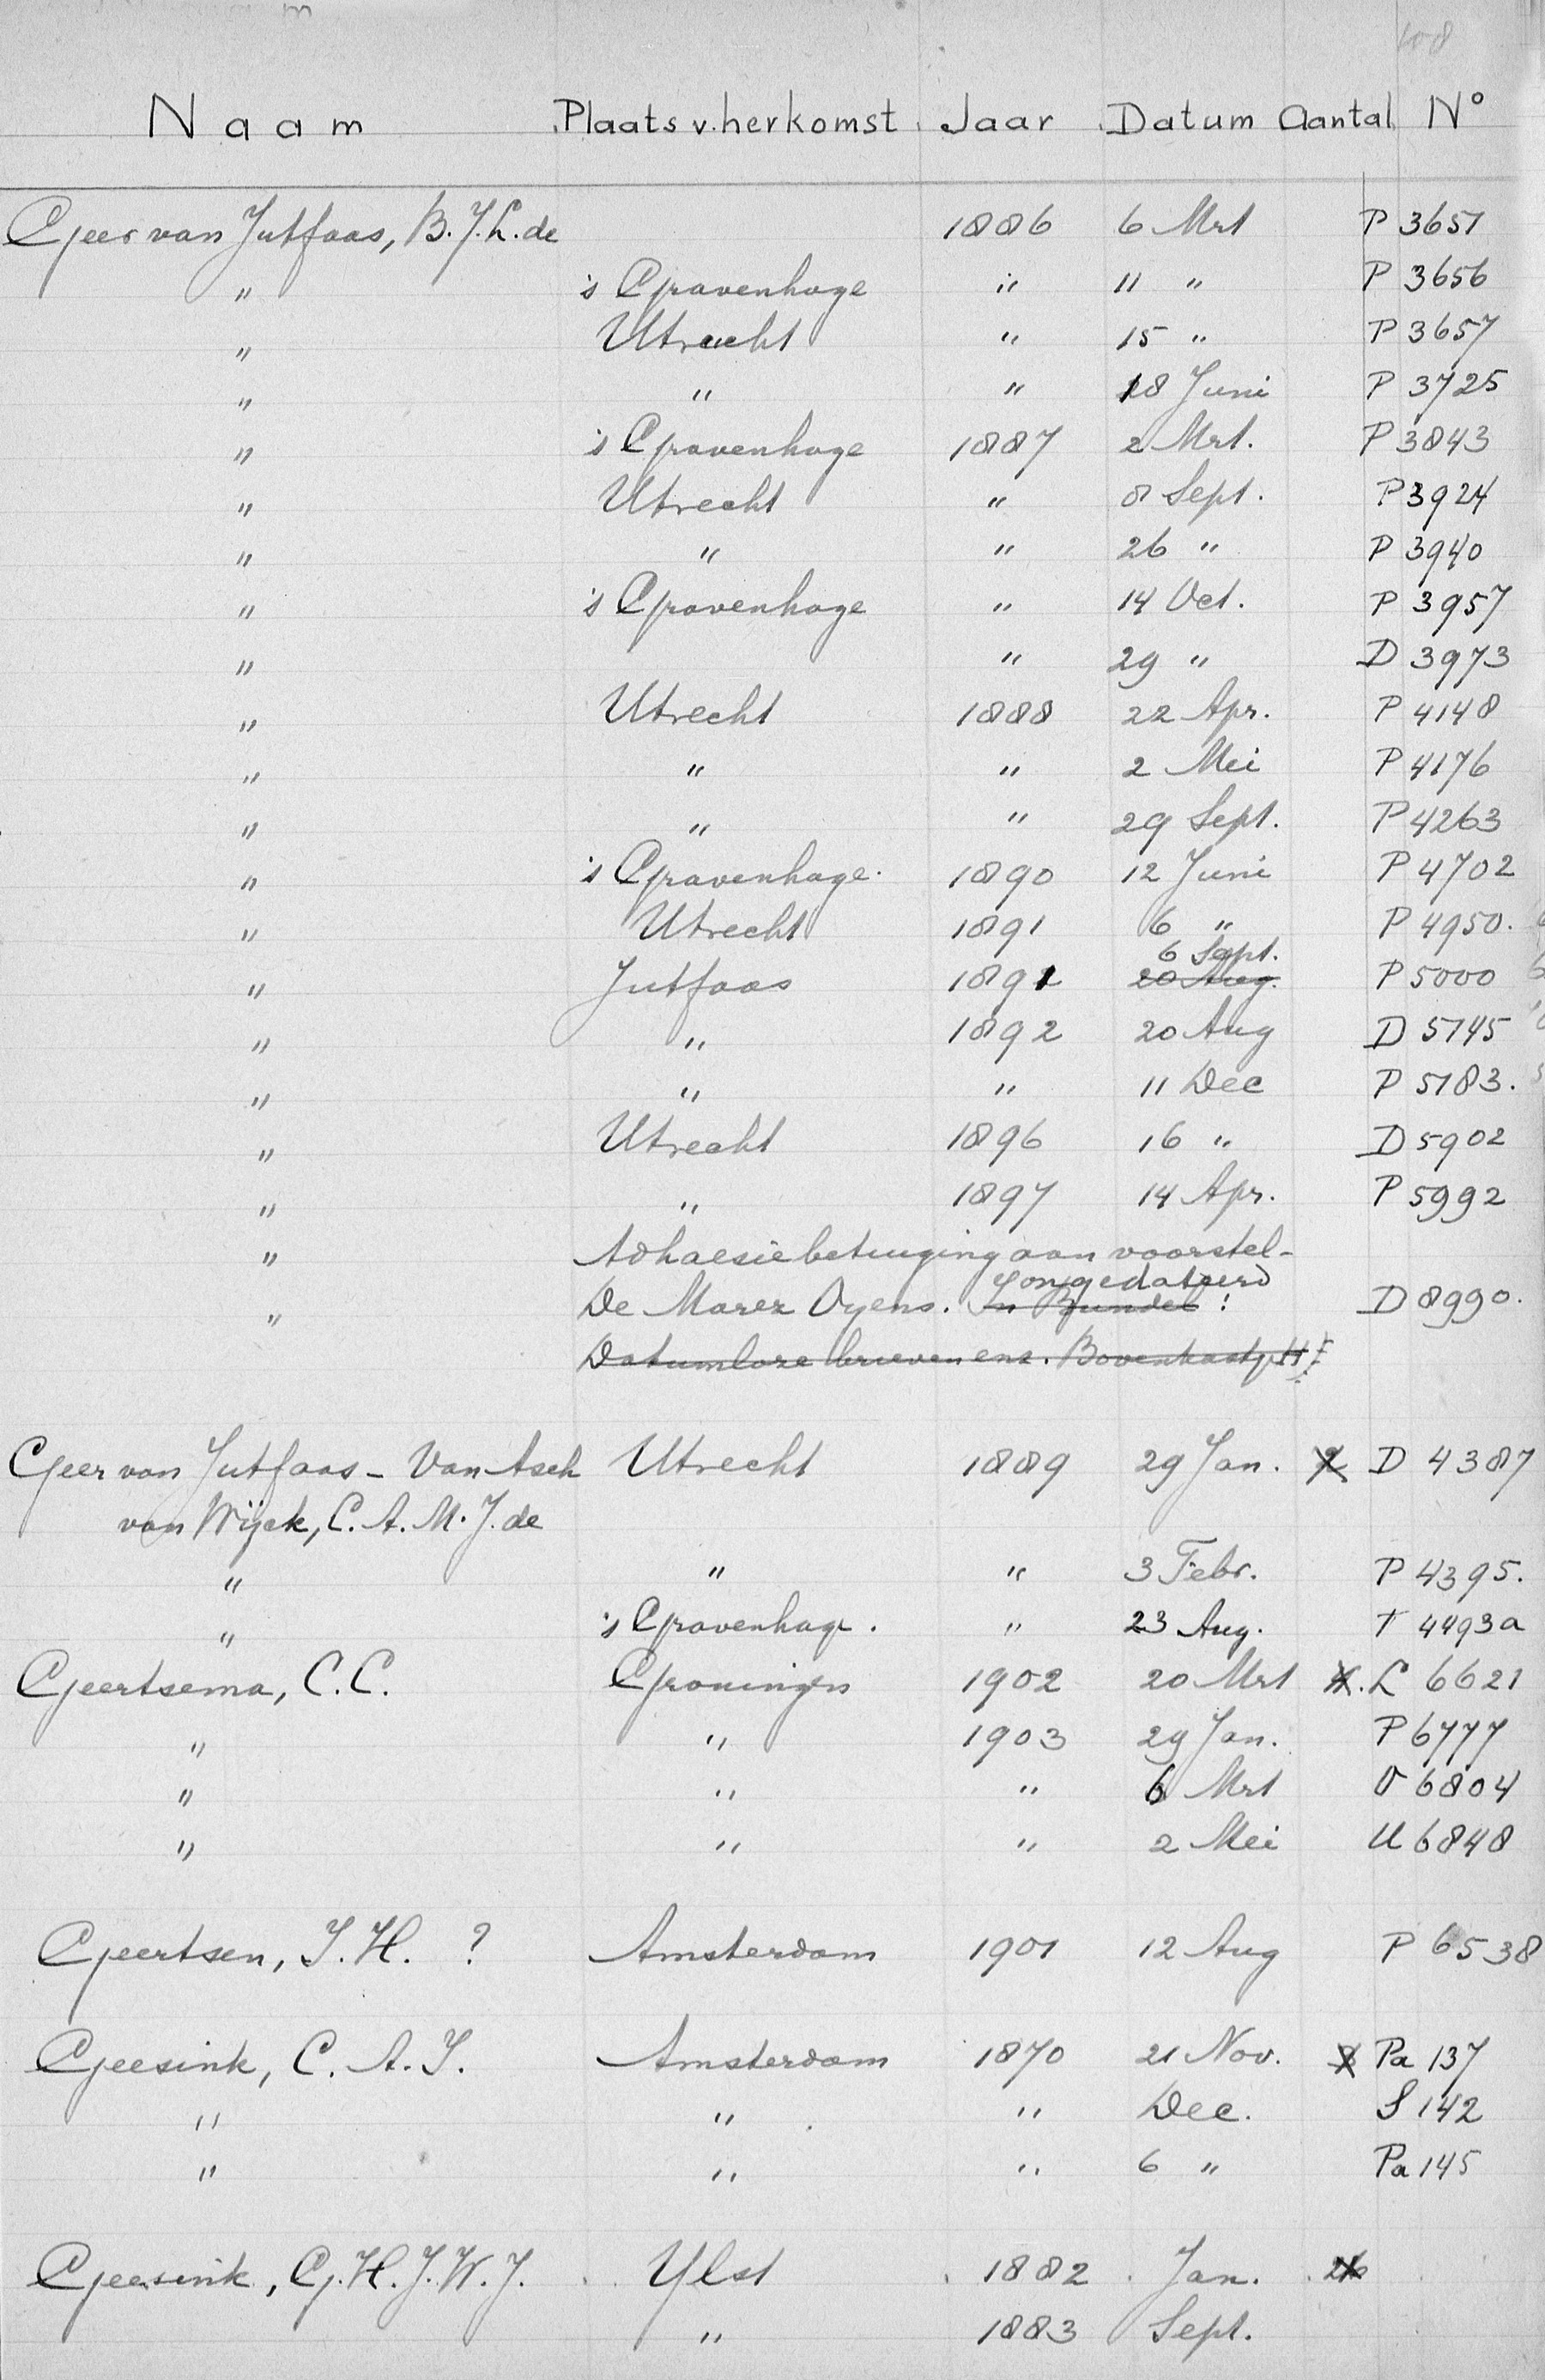 108
Naam Plaats v. herkomst Jaar Datum Aantal N°
Geer van Jutfaas, B.J.L. de 1886 6 Mrt P 3651
" 's Gravenhage " 11 " P 3656
" Utrecht " 15 " P 3657
" " " 18 Juni P 3725
" 's Gravenhage 1887 2 Mrt. P 3843
" Utrecht " 8 Sept. P 3924
" " " 26 " P 3940
" 's Gravenhage " 14 Oct. P 3957
" " 29 " D 3973
" Utrecht 1888 22 Apr. P 4148
" " " 2 Mei P 4176
" " " 29 Sept. P 4263
" 's Gravenhage. 1890 12 Juni P 4702
" Utrecht 1891 6 " P 4950.
6 Sept.
" Jutfaas 1891 20 Aug. P 5000
" " 1892 20 Aug D 5145
" " " 11 Dec P 5183.
" Utrecht 1896 16 " D 5902
" " 1897 14 Apr. P 5992
" Adhaesiebetuiging aan voorstel-
ongedateerd
" De Marez Oyens. In Bundel: D 8990.
Datumloze brieven enz. Bovenkastje H
Geer van Jutfaas - Van Asch Utrecht 1889 29 Jan. 2 D 4387
van Wijck, C. A. M. J. de
" " " 3 Febr. P 4395.
" 's Gravenhage. " 23 Aug. T 4493a
Geertsema, C.C. Groningen 1902 20 Mrt 4. L 6621
" " 1903 29 Jan. P 6777
" " " 6 Mrt O 6804
" " " 2 Mei U 6848
Geertsen, J.H. ? Amsterdam 1901 12 Aug P 6538
Geesink, C. A. J. Amsterdam 1870 21 Nov. 3 Pa 137
" " " Dec. S 142
" " " 6 " Pa 145
Geesink, G.H.J.W.J. Ylst 1882 Jan. 26
" 1883 Sept.